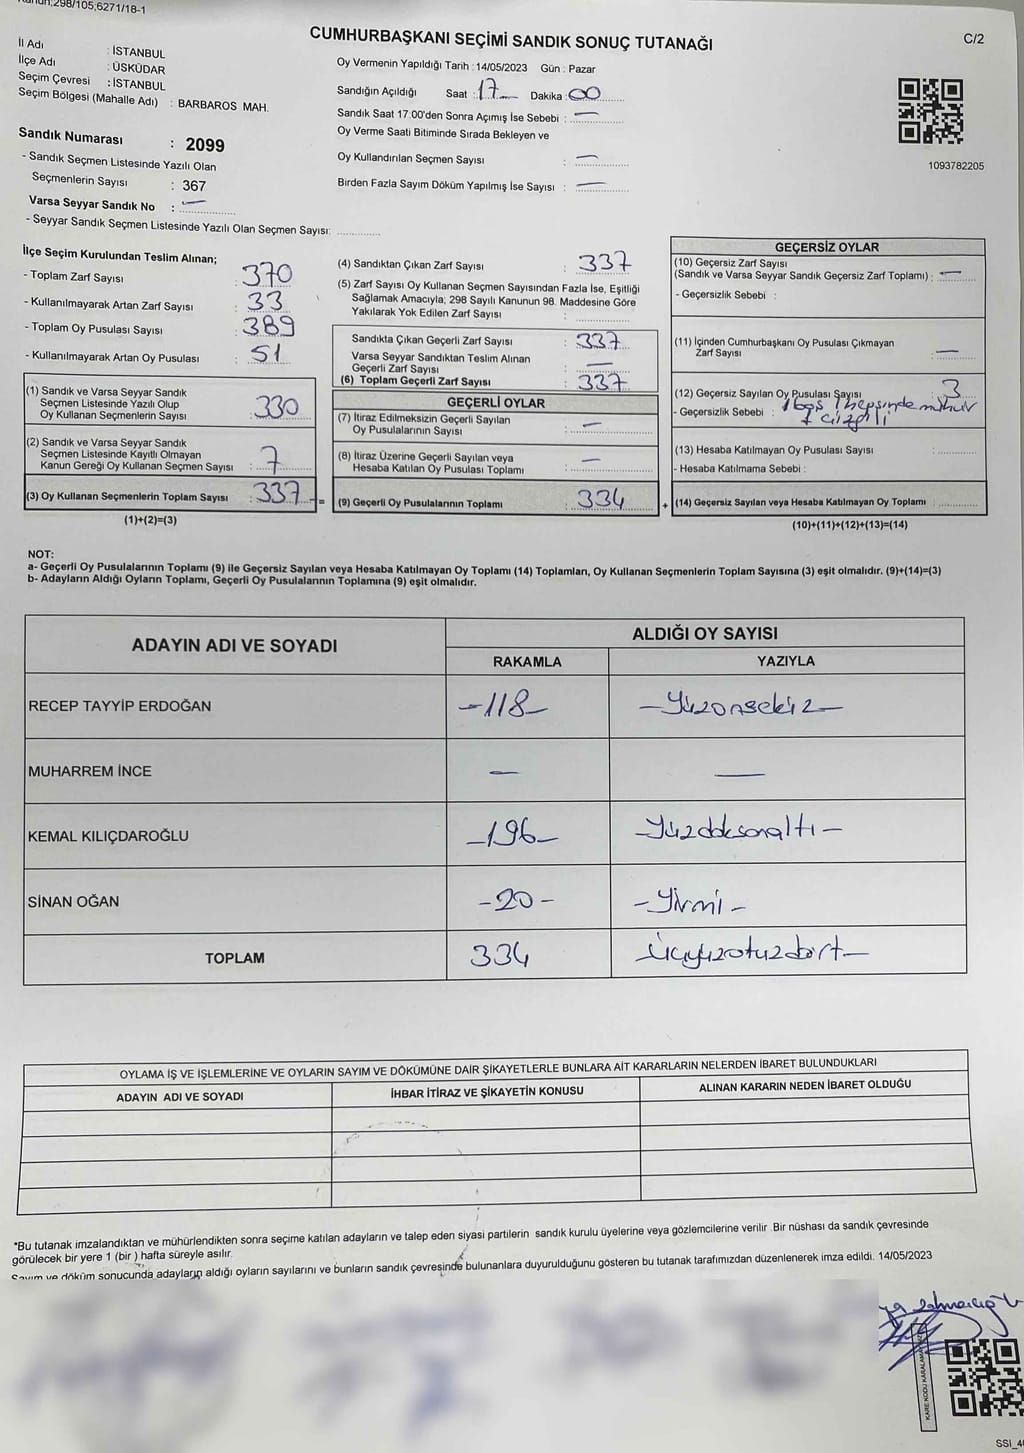 Kanun:298/105;6271/18-1
CUMHURBAŞKANI SEÇİMİ SANDIK SONUÇ TUTANAĞI
C/2
İl Adı : İSTANBUL
İlçe Adı : ÜSKÜDAR
Seçim Çevresi : İSTANBUL
Seçim Bölgesi (Mahalle Adı) : BARBAROS MAH.
Sandık Numarası : 2099
- Sandık Seçmen Listesinde Yazılı Olan
Seçmenlerin Sayısı : 367
Varsa Seyyar Sandık No : —
- Seyyar Sandık Seçmen Listesinde Yazılı Olan Seçmen Sayısı:
Oy Vermenin Yapıldığı Tarih : 14/05/2023 Gün : Pazar
Sandığın Açıldığı Saat : 17 Dakika : 00
Sandık Saat 17:00'den Sonra Açımış İse Sebebi : —
Oy Verme Saati Bitiminde Sırada Bekleyen ve
Oy Kullandırılan Seçmen Sayısı : —
Birden Fazla Sayım Döküm Yapılmış İse Sayısı : —
1093782205
İlçe Seçim Kurulundan Teslim Alınan;
- Toplam Zarf Sayısı : 370
- Kullanılmayarak Artan Zarf Sayısı : 33
- Toplam Oy Pusulası Sayısı : 389
- Kullanılmayarak Artan Oy Pusulası : 51
(1) Sandık ve Varsa Seyyar Sandık
Seçmen Listesinde Yazılı Olup
Oy Kullanan Seçmenlerin Sayısı : 330
(2) Sandık ve Varsa Seyyar Sandık
Seçmen Listesinde Kayıtlı Olmayan
Kanun Gereği Oy Kullanan Seçmen Sayısı : 7
(3) Oy Kullanan Seçmenlerin Toplam Sayısı : 337 =
(1)+(2)=(3)
(4) Sandıktan Çıkan Zarf Sayısı : 337
(5) Zarf Sayısı Oy Kullanan Seçmen Sayısından Fazla İse, Eşitliği
Sağlamak Amacıyla; 298 Sayılı Kanunun 98. Maddesine Göre
Yakılarak Yok Edilen Zarf Sayısı :
Sandıkta Çıkan Geçerli Zarf Sayısı : 337
Varsa Seyyar Sandıktan Teslim Alınan
Geçerli Zarf Sayısı : —
(6) Toplam Geçerli Zarf Sayısı : 337
GEÇERLİ OYLAR
(7) İtiraz Edilmeksizin Geçerli Sayılan
Oy Pusulalarının Sayısı : —
(8) İtiraz Üzerine Geçerli Sayılan veya
Hesaba Katılan Oy Pusulası Toplamı : —
(9) Geçerli Oy Pusulalarının Toplamı : 334 +
GEÇERSİZ OYLAR
(10) Geçersiz Zarf Sayısı
(Sandık ve Varsa Seyyar Sandık Geçersiz Zarf Toplamı) : —
- Geçersizlik Sebebi :
(11) İçinden Cumhurbaşkanı Oy Pusulası Çıkmayan
Zarf Sayısı : —
(12) Geçersiz Sayılan Oy Pusulası Sayısı 3
- Geçersizlik Sebebi : 1 boş 1 hepsinde mühür
1 çizgili
(13) Hesaba Katılmayan Oy Pusulası Sayısı :
- Hesaba Katılmama Sebebi :
(14) Geçersiz Sayılan veya Hesaba Katılmayan Oy Toplamı :
(10)+(11)+(12)+(13)=(14)
NOT:
a- Geçerli Oy Pusulalarının Toplamı (9) ile Geçersiz Sayılan veya Hesaba Katılmayan Oy Toplamı (14) Toplamları, Oy Kullanan Seçmenlerin Toplam Sayısına (3) eşit olmalıdır. (9)+(14)=(3)
b- Adayların Aldığı Oyların Toplamı, Geçerli Oy Pusulalarının Toplamına (9) eşit olmalıdır.
ADAYIN ADI VE SOYADI
ALDIĞI OY SAYISI
RAKAMLA YAZIYLA
RECEP TAYYİP ERDOĞAN -118- -Yüzonsekiz-
MUHARREM İNCE — —
KEMAL KILIÇDAROĞLU -196- -Yüzdoksanaltı-
SİNAN OĞAN -20- -Yirmi-
TOPLAM 334 Üçyüzotuzdört-
OYLAMA İŞ VE İŞLEMLERİNE VE OYLARIN SAYIM VE DÖKÜMÜNE DAİR ŞİKAYETLERLE BUNLARA AİT KARARLARIN NELERDEN İBARET BULUNDUKLARI
ADAYIN ADI VE SOYADI İHBAR İTİRAZ VE ŞİKAYETİN KONUSU ALINAN KARARIN NEDEN İBARET OLDUĞU
*Bu tutanak imzalandıktan ve mühürlendikten sonra seçime katılan adayların ve talep eden siyasi partilerin sandık kurulu üyelerine veya gözlemcilerine verilir .Bir nüshası da sandık çevresinde
görülecek bir yere 1 (bir ) hafta süreyle asılır.
Sayım ve döküm sonucunda adayların aldığı oyların sayılarını ve bunların sandık çevresinde bulunanlara duyurulduğunu gösteren bu tutanak tarafımızdan düzenlenerek imza edildi. 14/05/2023
KARE KODU KARALAMAYINIZ